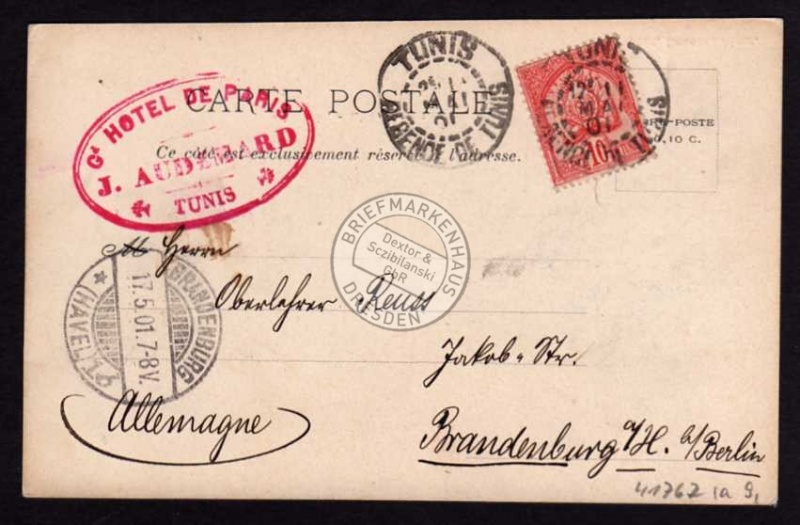 CARTE POSTALE
Ce côté est exclusivement réservé à l'adresse.
Gd HOTEL DE PARIS
J. AUDEMARD
TUNIS
TUNIS
REGENCE DE TUNIS
TUNIS
10
POSTE
0,10 C.
M Herrn
Oberlehrer Reuss
Jakob-Str.
Brandenburg a/H. b/Berlin
Allemagne
BRANDENBURG
17.5.01.7-8V.
(HAVEL)
BRIEFMARKENHAUS
Dextor &
Sczibilanski
GbR
DRESDEN
41767 1a 9,